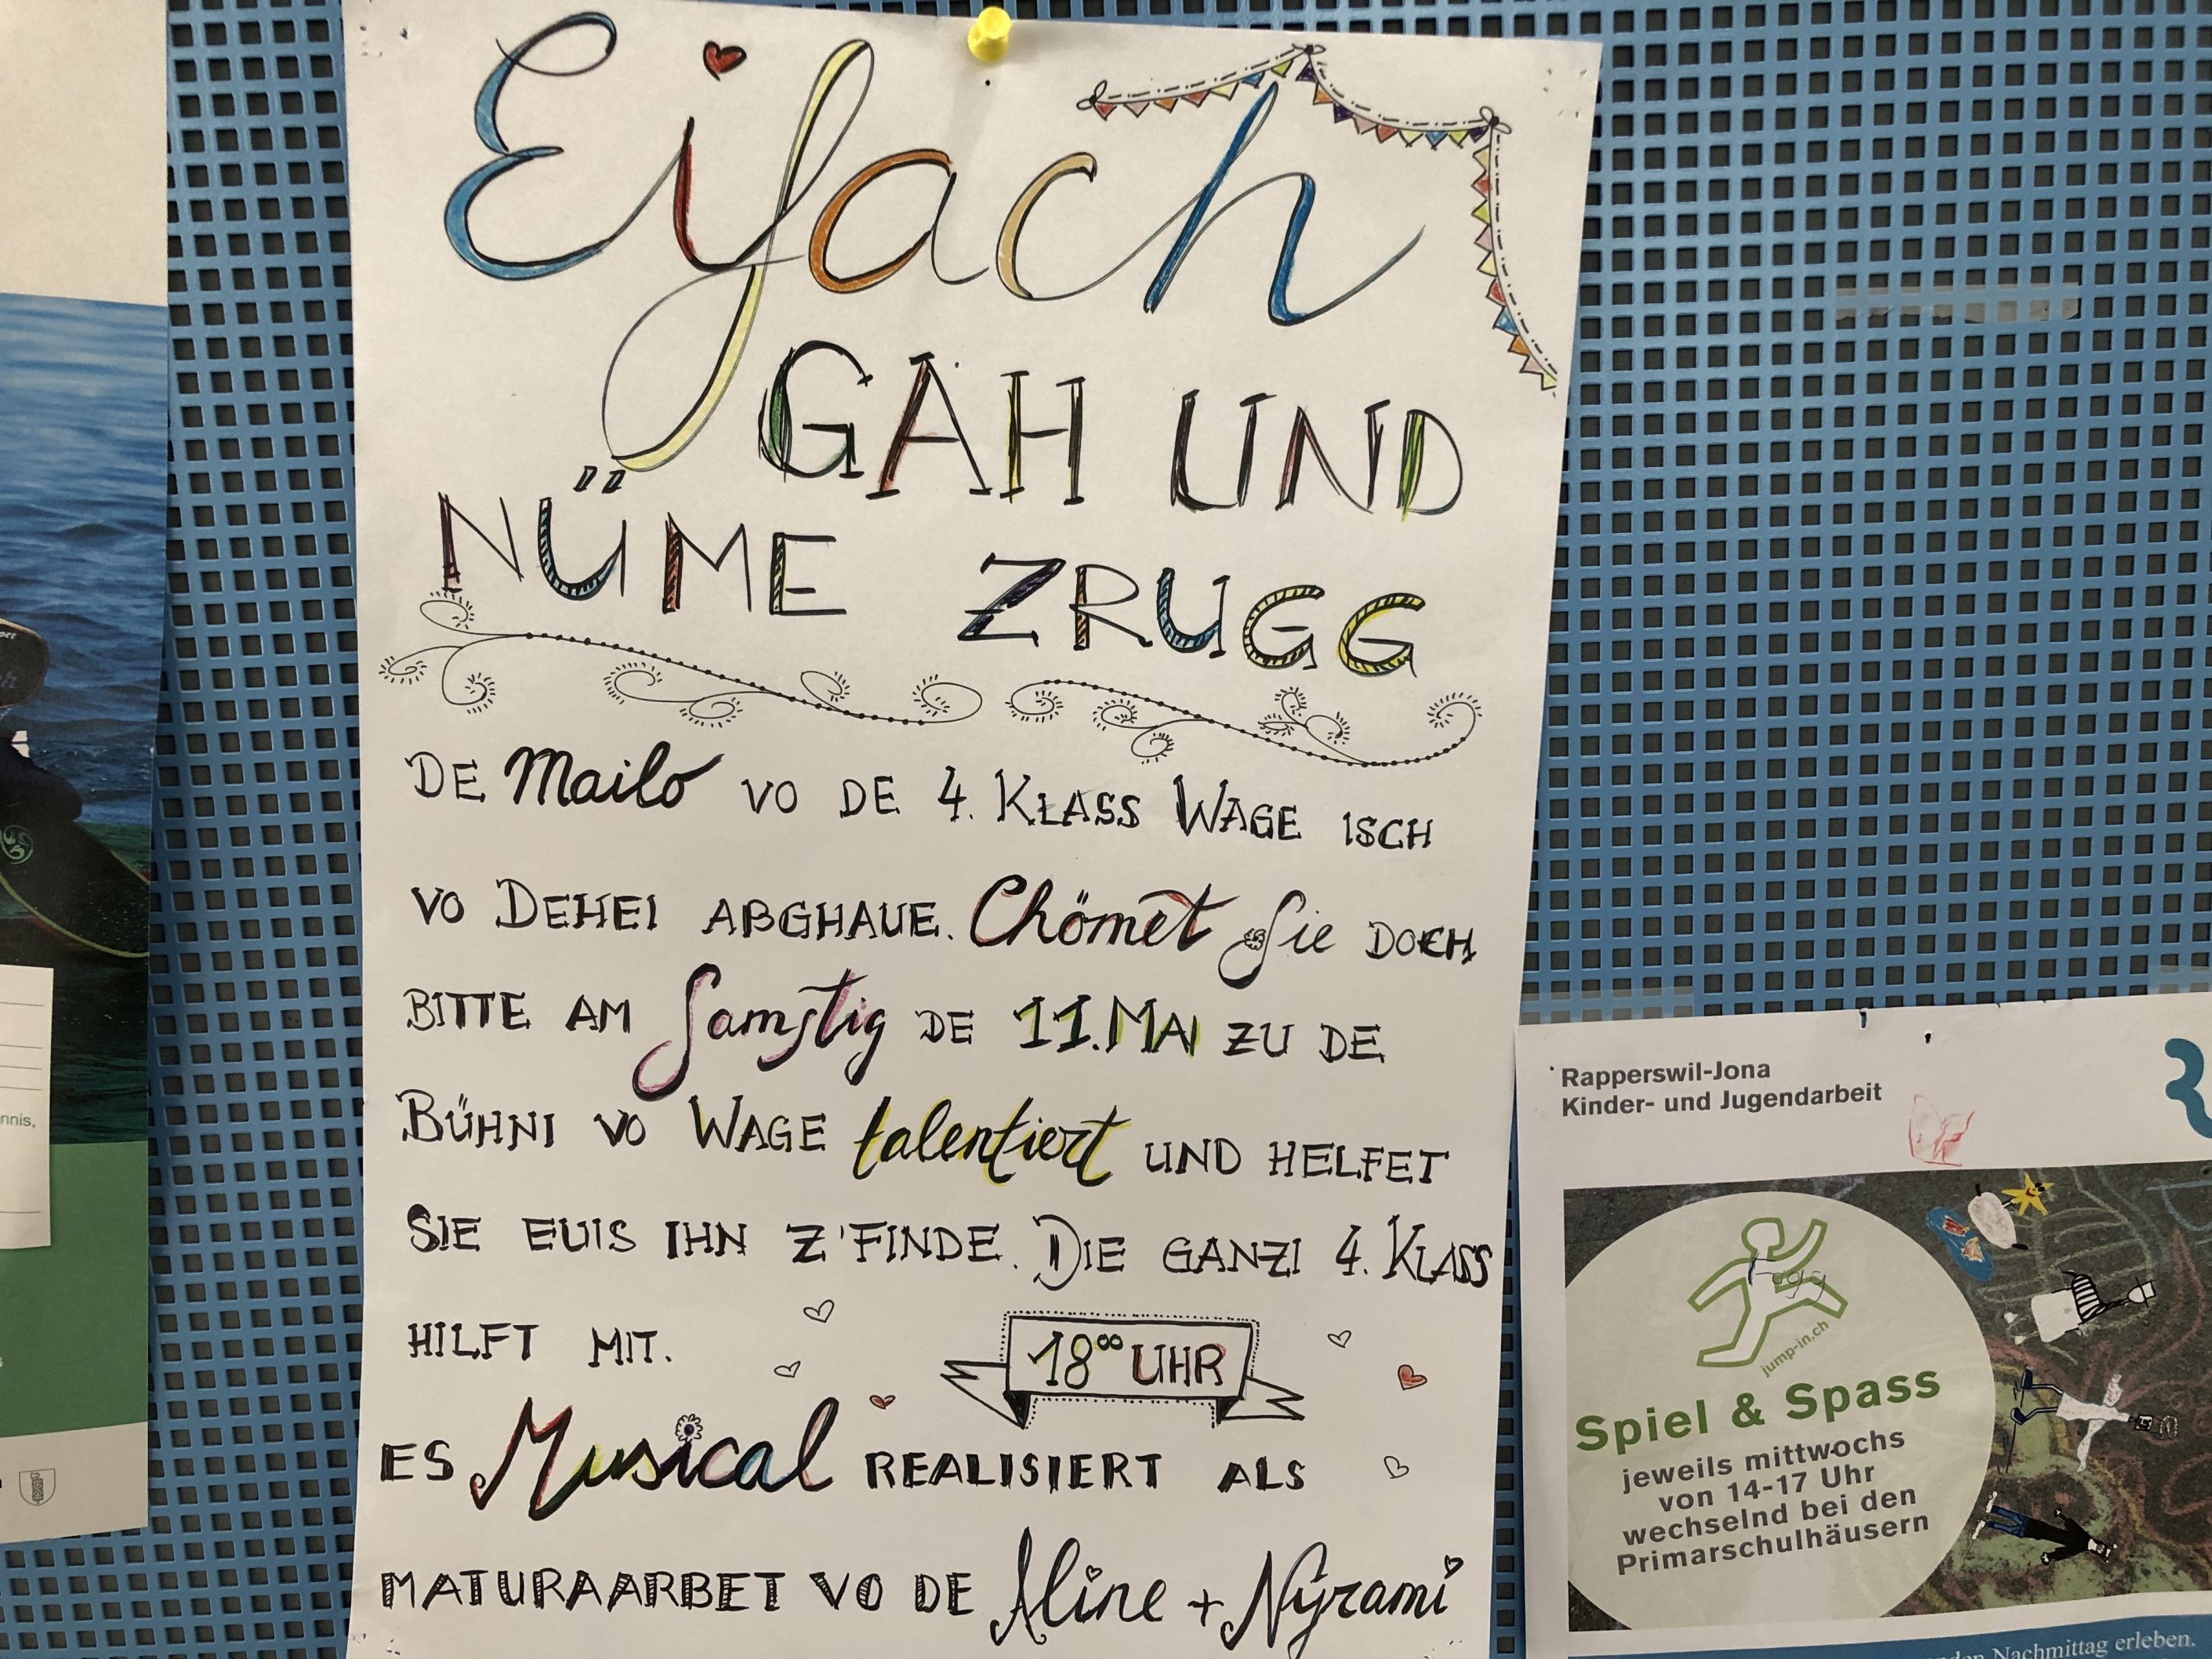 Eifach
GAH UND
NÜME ZRUGG
DE Mailo VO DE 4. KLASS WAGE ISCH
VO DEHEI ABGHAUE. Chömet Sie DOCH
BITTE AM Samstig DE 11. MAI ZU DE
BÜHNI VO WAGE talentiert UND HELFET
SIE EUIS IHN Z'FINDE. DIE GANZI 4. KLASS
HILFT MIT.
18⁰⁰ UHR
ES Musical REALISIERT ALS
MATURAARBET VO DE Aline + Nyrami
Rapperswil-Jona
Kinder- und Jugendarbeit
jump-in.ch
Spiel & Spass
jeweils mittwochs
von 14-17 Uhr
wechselnd bei den
Primarschulhäusern
Nachmittag erleben.